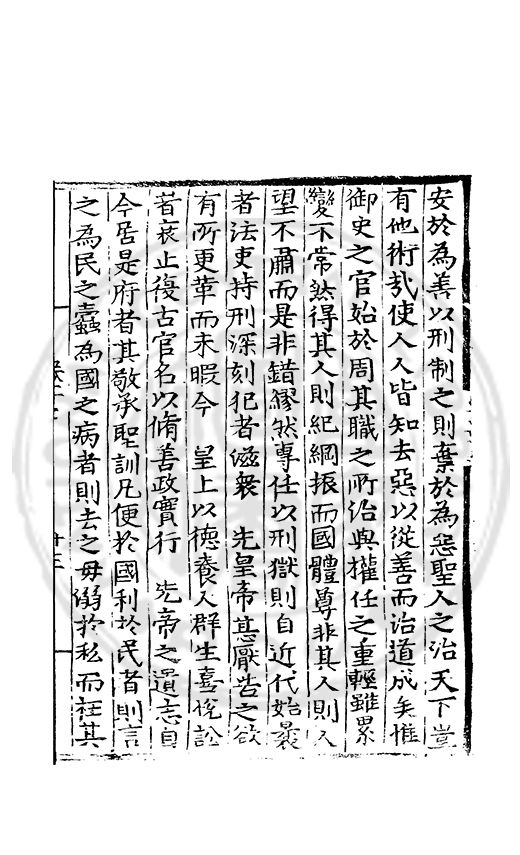 安於為善以刑制之則棄於為惡聖人之治天下豈
有他術哉使人人皆知去惡以從善而治道成矣惟
御史之官始於周其職之所治與權任之重輕雖累
變不常然得其人則紀綱振而國體尊非其人則人
望不肅而是非錯繆然專任以刑獄則自近代始曩
者法吏持刑深刻犯者滋衆 先皇帝惎厭告之欲
有所更革而未暇今 皇上以德養人群生喜悅訟
者衰止復古官名以脩善政實行 先帝之遺志自
今居是府者其敬承聖訓凡便於國利於民者則言
之為民之蠹為國之病者則去之毋溺於私而枉其
卷之十
十三